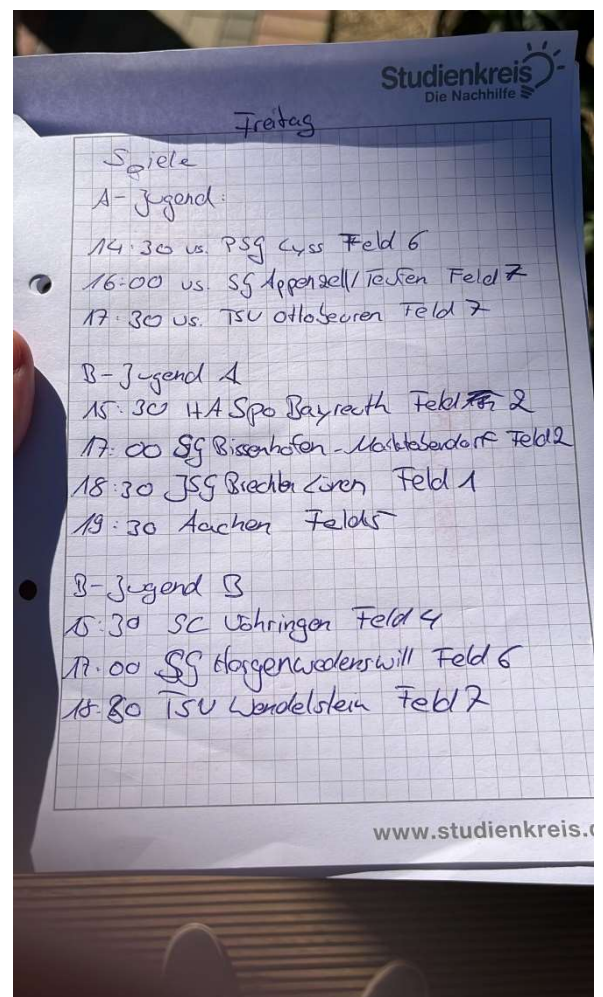 Studienkreis
Die Nachhilfe
Freitag
Spiele
A-Jugend:
14:30 vs. PSG Lyss Feld 6
16:00 vs. SG Appenzell/Teufen Feld 7
17:30 vs. TSV Ottobeuren Feld 7
B-Jugend A
15:30 HASpo Bayreuth Feld 2
17:00 SG Bissenhofen-Marktoberdorf Feld 2
18:30 JSG Feld 1
19:30 Aachen Feld 5
B-Jugend B
15:30 SC Vöhringen Feld 4
17:00 SG Feld 6
18:30 TSV Wendelstein Feld 7
www.studienkreis.